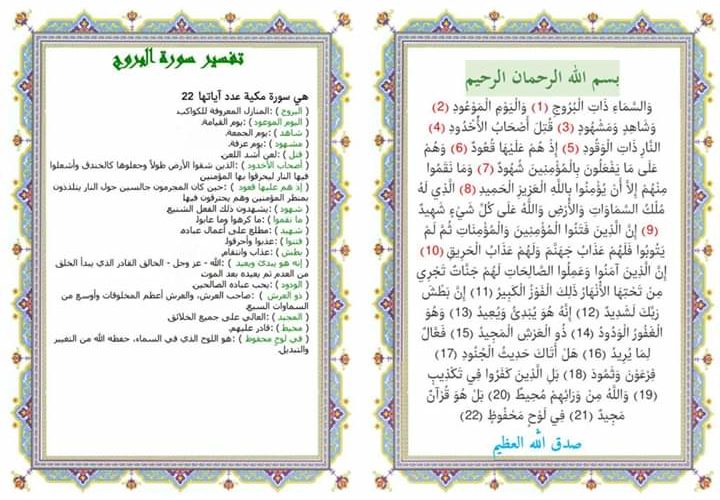 بسم الله الرحمان الرحيم
وَالسَّمَاءِ ذَاتِ الْبُرُوجِ (1) وَالْيَوْمِ الْمَوْعُودِ (2)
وَشَاهِدٍ وَمَشْهُودٍ (3) قُتِلَ أَصْحَابُ الْأُخْدُودِ (4)
النَّارِ ذَاتِ الْوَقُودِ (5) إِذْ هُمْ عَلَيْهَا قُعُودٌ (6) وَهُمْ
عَلَى مَا يَفْعَلُونَ بِالْمُؤْمِنِينَ شُهُودٌ (7) وَمَا نَقَمُوا
مِنْهُمْ إِلَّا أَنْ يُؤْمِنُوا بِاللَّهِ الْعَزِيزِ الْحَمِيدِ (8) الَّذِي لَهُ
مُلْكُ السَّمَاوَاتِ وَالْأَرْضِ وَاللَّهُ عَلَى كُلِّ شَيْءٍ شَهِيدٌ
(9) إِنَّ الَّذِينَ فَتَنُوا الْمُؤْمِنِينَ وَالْمُؤْمِنَاتِ ثُمَّ لَمْ
يَتُوبُوا فَلَهُمْ عَذَابُ جَهَنَّمَ وَلَهُمْ عَذَابُ الْحَرِيقِ (10)
إِنَّ الَّذِينَ آمَنُوا وَعَمِلُوا الصَّالِحَاتِ لَهُمْ جَنَّاتٌ تَجْرِي
مِنْ تَحْتِهَا الْأَنْهَارُ ذَلِكَ الْفَوْزُ الْكَبِيرُ (11) إِنَّ بَطْشَ
رَبِّكَ لَشَدِيدٌ (12) إِنَّهُ هُوَ يُبْدِئُ وَيُعِيدُ (13) وَهُوَ
الْغَفُورُ الْوَدُودُ (14) ذُو الْعَرْشِ الْمَجِيدُ (15) فَعَّالٌ
لِمَا يُرِيدُ (16) هَلْ أَتَاكَ حَدِيثُ الْجُنُودِ (17)
فِرْعَوْنَ وَثَمُودَ (18) بَلِ الَّذِينَ كَفَرُوا فِي تَكْذِيبٍ
(19) وَاللَّهُ مِنْ وَرَائِهِمْ مُحِيطٌ (20) بَلْ هُوَ قُرْآنٌ
مَجِيدٌ (21) فِي لَوْحٍ مَحْفُوظٍ (22)
صدق الله العظيم
تفسير سورة البروج
هي سورة مكية عدد آياتها 22
( البروج ) :المنازل المعروفة للكواكب.
( اليوم الموعود ) :يوم القيامة.
( شاهد ) :يوم الجمعة.
( مشهود ) :يوم عرفة.
( قتل ) :لعن أشد اللعن.
( أصحاب الأخدود ) :الذين شقوا الأرض طولاً وجعلوها كالخندق وأشعلوا
فيها النار ليحرقوا بها المؤمنين
( إذ هم عليها قعود ) :حين كان المجرمون جالسين حول النار يتلذذون
بمنظر المؤمنين وهم يحترقون فيها
( شهود ) :يشهدون ذلك الفعل الشنيع.
( ما نقموا ) :ما كرهوا وما عابوا.
( شهيد ) :مطلع على أعمال عباده.
( فتنوا ) :عذبوا وأحرقوا.
( بطش ) :عذاب وانتقام.
( إنه هو يبدئ ويعيد ) :الله - عز وجل - الخالق القادر الذي يبدأ الخلق
من العدم ثم يعيده بعد الموت
( الودود ) :يحب عباده الصالحين.
( ذو العرش ) : صاحب العرش، والعرش أعظم المخلوقات وأوسع من
السماوات السبع.
( المجيد ) :العالي على جميع الخلائق.
( محيط ) :قادر عليهم.
( في لوح محفوظ ) :هو اللوح الذي في السماء، حفظه الله من التغيير
والتبديل.